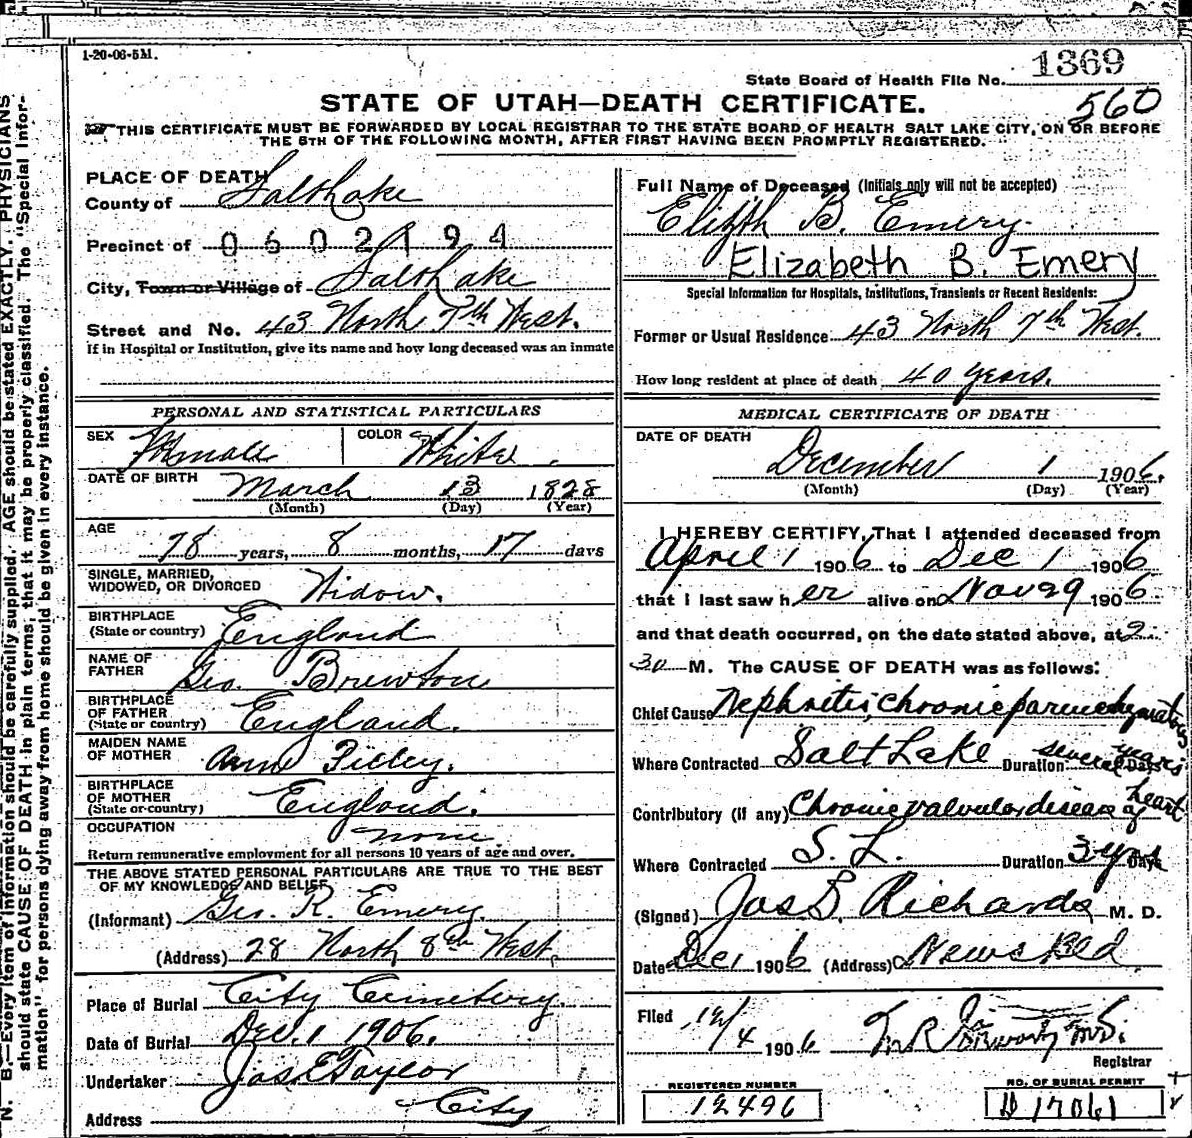 1-20-06-5M.
State Board of Health File No. 1369
560
STATE OF UTAH—DEATH CERTIFICATE.
THIS CERTIFICATE MUST BE FORWARDED BY LOCAL REGISTRAR TO THE STATE BOARD OF HEALTH SALT LAKE CITY, ON OR BEFORE
THE 5TH OF THE FOLLOWING MONTH, AFTER FIRST HAVING BEEN PROMPTLY REGISTERED.
PLACE OF DEATH
County of Salt Lake
Precinct of 0602194
City, Town or Village of Salt Lake
Street and No. 43 North 7th West.
If in Hospital or Institution, give its name and how long deceased was an inmate
Full Name of Deceased (Initials only will not be accepted)
Elizth B. Emery.
Elizabeth B. Emery
Special Information for Hospitals, Institutions, Transients or Recent Residents:
Former or Usual Residence 43 North 7th West.
How long resident at place of death 40 years.
PERSONAL AND STATISTICAL PARTICULARS
SEX Female COLOR White
DATE OF BIRTH March 13 1828
(Month) (Day) (Year)
AGE 78 years, 8 months, 17 days
SINGLE, MARRIED,
WIDOWED, OR DIVORCED Widow.
BIRTHPLACE
(State or country) England
NAME OF
FATHER Geo. Brewton
BIRTHPLACE
OF FATHER
(State or country) England.
MAIDEN NAME
OF MOTHER Ann Filley.
BIRTHPLACE
OF MOTHER
(State or country) England.
OCCUPATION none
Return remunerative employment for all persons 10 years of age and over.
THE ABOVE STATED PERSONAL PARTICULARS ARE TRUE TO THE BEST
OF MY KNOWLEDGE AND BELIEF
(Informant) Geo. R. Emery.
(Address) 28 North 8th West.
Place of Burial City Cemetery.
Date of Burial Dec. 1 1906.
Undertaker Jas E Taylor
Address City
MEDICAL CERTIFICATE OF DEATH
DATE OF DEATH
December 1 1906.
(Month) (Day) (Year)
I HEREBY CERTIFY, That I attended deceased from
April 1 1906 to Dec 1 1906
that I last saw her alive on Nov 29 1906
and that death occurred, on the date stated above, at 2
30 M. The CAUSE OF DEATH was as follows:
Chief Cause Nephritis, chronic parenchymatous
Where Contracted Salt Lake Duration several years Days
Contributory (if any) Chronic valvular disease of heart
Where Contracted S. L. Duration 3 yrs Days
(Signed) Jas B. Richards M. D.
Date Dec 1 1906 (Address) News Bld
Filed 12/4 1906 M.D.
Registrar
REGISTERED NUMBER
12496
NO. OF BURIAL PERMIT
D 17061
N. B.—Every item of information should be carefully supplied. AGE should be stated EXACTLY. PHYSICIANS
should state CAUSE OF DEATH in plain terms, that it may be properly classified. The "Special Infor-
mation" for persons dying away from home should be given in every instance.